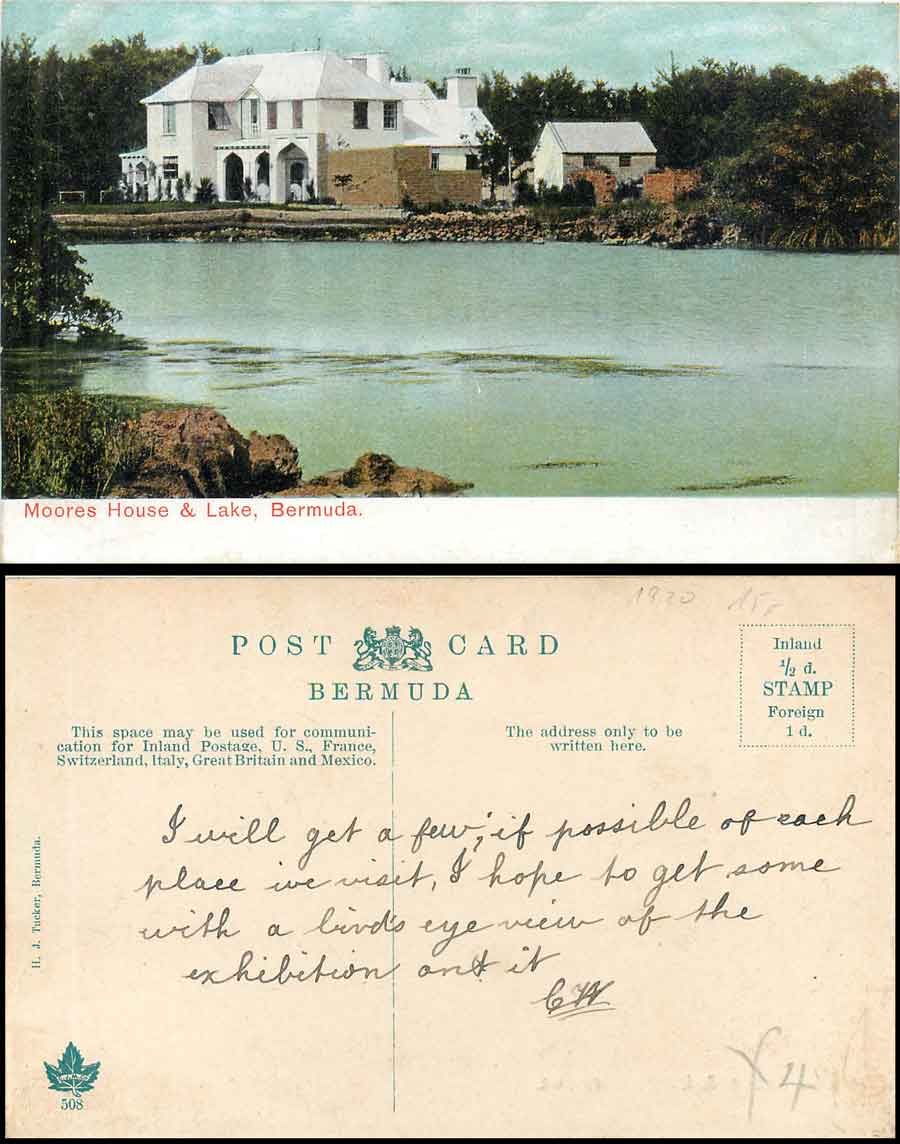 Moores House & Lake, Bermuda.
1920 15,-
POST CARD
BERMUDA
Inland
½ d.
STAMP
Foreign
1 d.
This space may be used for communi-
cation for Inland Postage, U. S., France,
Switzerland, Italy, Great Britain and Mexico.
The address only to be
written here.
I will get a few, if possible of each
place we visit, I hope to get some
with a bird's eye view of the
exhibition on it
CW
H. J. Tucker, Bermuda.
508
4